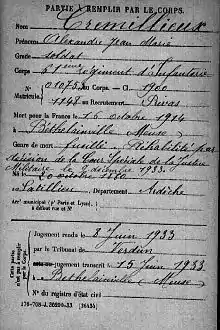 PARTIE À REMPLIR PAR LE CORPS.
Nom Cremillieux
Prénoms Alexandre Jean Marie
Grade soldat
Corps régiment d'Infanterie
N° 01073 au Corps. — Cl. 1900
Matricule. 1148 au Recrutement Privas
Mort pour la France le 15 octobre 1914
à Bethelainville Meuse
Genre de mort fusillé Réhabilité par
décision de la Cour Spéciale de Justice
Militaire du 2 décembre 1933
Né le octobre 1880
à Satillieu Département Ardèche
Arr¹ municipal (pʳ Paris et Lyon),
à défaut rue et N°
Cette partie
n'est pas
à remplir
par le Corps.
Jugement rendu le 8 Juin 1933
par le Tribunal de Verdun
jugement transcrit le 15 Juin 1933
à Bethelainville (Meuse)
N° du registre d'état civil